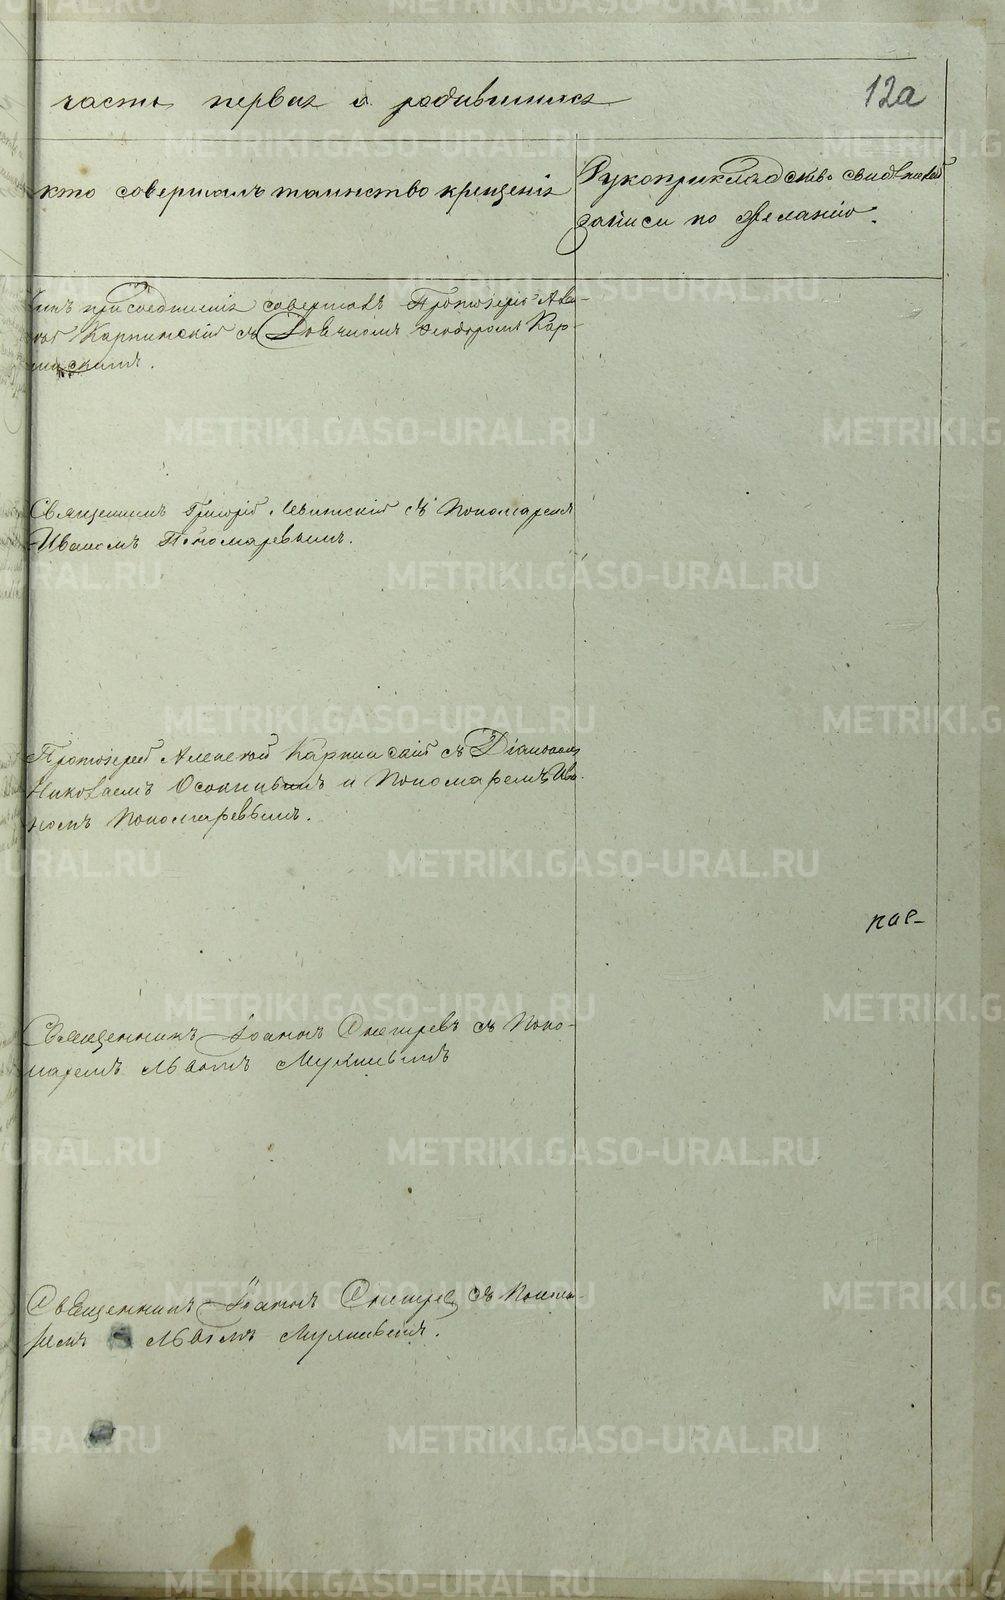 часть первая о родившихся
12а
кто совершалъ таинство крещенія
Рукоприкладство свидѣтелей
записи по желанію.
присоединенія совершалъ Протоіерей Але-
Карпинскій съ Діакономъ Феодоромъ Кар-
пинскимъ.
Священникъ Григорій Левитскій съ Пономаремъ
Иваномъ Пономаревымъ.
Протоіерей Алексѣй Карпинскій съ Діакономъ
Николаемъ Осокинымъ и Пономаремъ Ива-
номъ Пономаревымъ.
Священникъ Іоаннъ съ Поно-
маремъ Львомъ
Священникъ Іоаннъ съ Понома-
ремъ Львомъ
METRIKI.GASO-URAL.RU